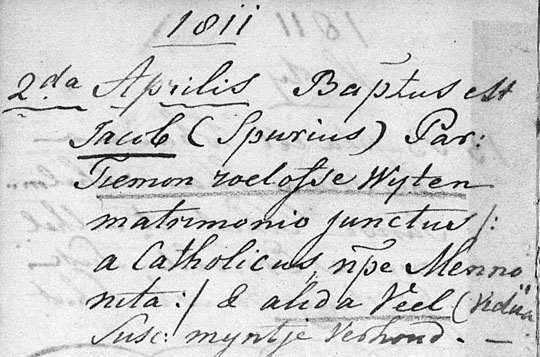 1811
2da Aprilis Baptus est
Jacob (Spurius) Par:
Tiemon roelofse Wyten
matrimonio junctus /:
a Catholicus, npe Menno
nita :/ & alida Veel (Vidua
Susc: myntje Verhoud. —